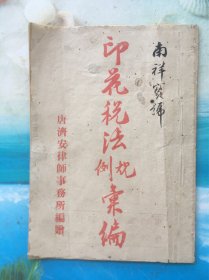 南祥宝號
印花税法規例彙編
唐濟安律師事務所編贈